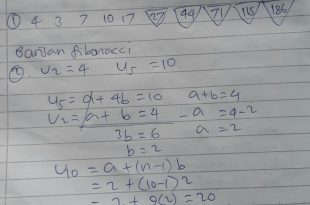 ① 4 3 7 10 17 27 44 71 115 186
Barisan fibonacci
②. U2 = 4 U5 = 10
U5 = a + 4b = 10 a + b = 4
U2 = a + b = 4 a = 4 - 2
3b = 6 a = 2
b = 2
U10 = a + (n-1) b
= 2 + (10-1) 2
= 2 + 9(2) = 20